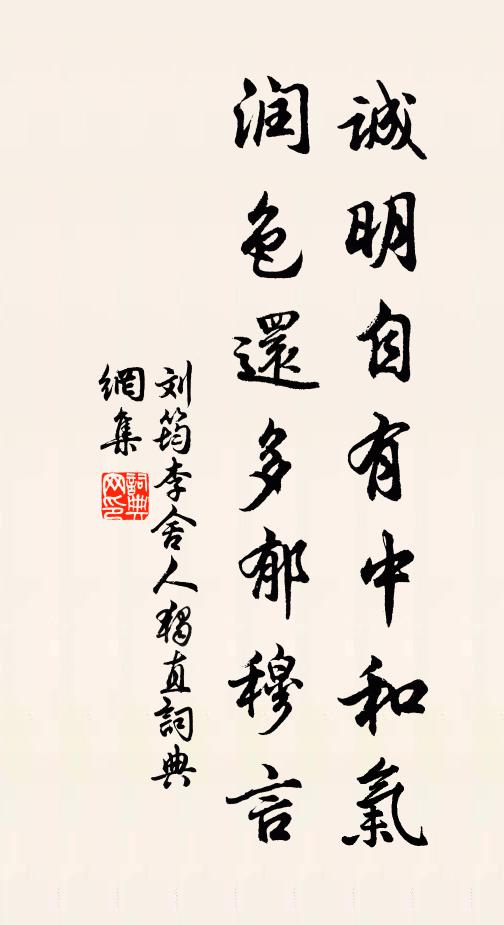 誠明自有中和氣
润色還多郁穆言
刘筠李舍人獨直詞典
網集
詞典
网印